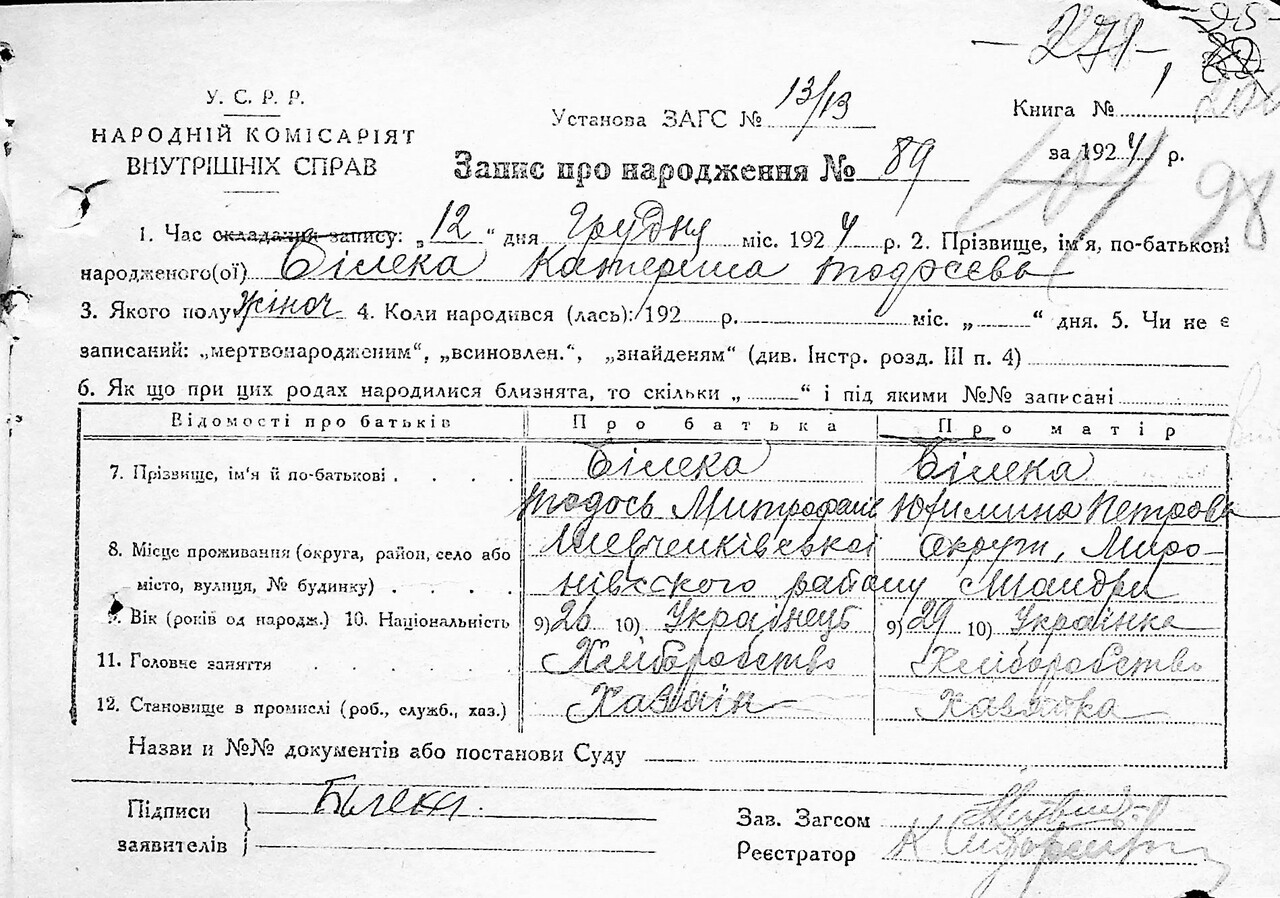 - 271 -
У. С. Р. Р.
НАРОДНІЙ КОМІСАРІЯТ
ВНУТРІШНІХ СПРАВ
Установа ЗАГС № 13/13
Книга №
за 1924 р.
98
Запис про народження № 89
1. Час складання запису: „12“ дня Грудня міс. 1924 р. 2. Прізвище, ім'я, по-батькові
народженого(ої) Білека Катерина Тодосєва
3. Якого полу жіноч 4. Коли народився (лась): 192 р. міс. „ “ дня. 5. Чи не є
записаний: „мертвонародженим“, „всиновлен.“, „знайденям“ (див. Інстр. розд. III п. 4)
6. Як що при цих родах народилися близнята, то скільки „ “ і під якими №№ записані
Відомості про батьків Про батька Про матір
7. Прізвище, ім'я й по-батькові . . . . Білека Білека
Тодось Митрофанів Юхимина Петрова
8. Місце проживання (округа, район, село або Шевченківської округи, Миро-
місто, вулиця, № будинку) . . . . нівського району Шандри
9. Вік (років од народж.) 10. Національність 9) 26 10) Українець 9) 29 10) Українка
11. Головне заняття . . . . . . Хліборобство Хліборобство
12. Становище в промислі (роб., служб., хаз.) Хазяін Хазяйка
Назви и №№ документів або постанови Суду
Підписи Білека
заявителів
Зав. Загсом
Реєстратор